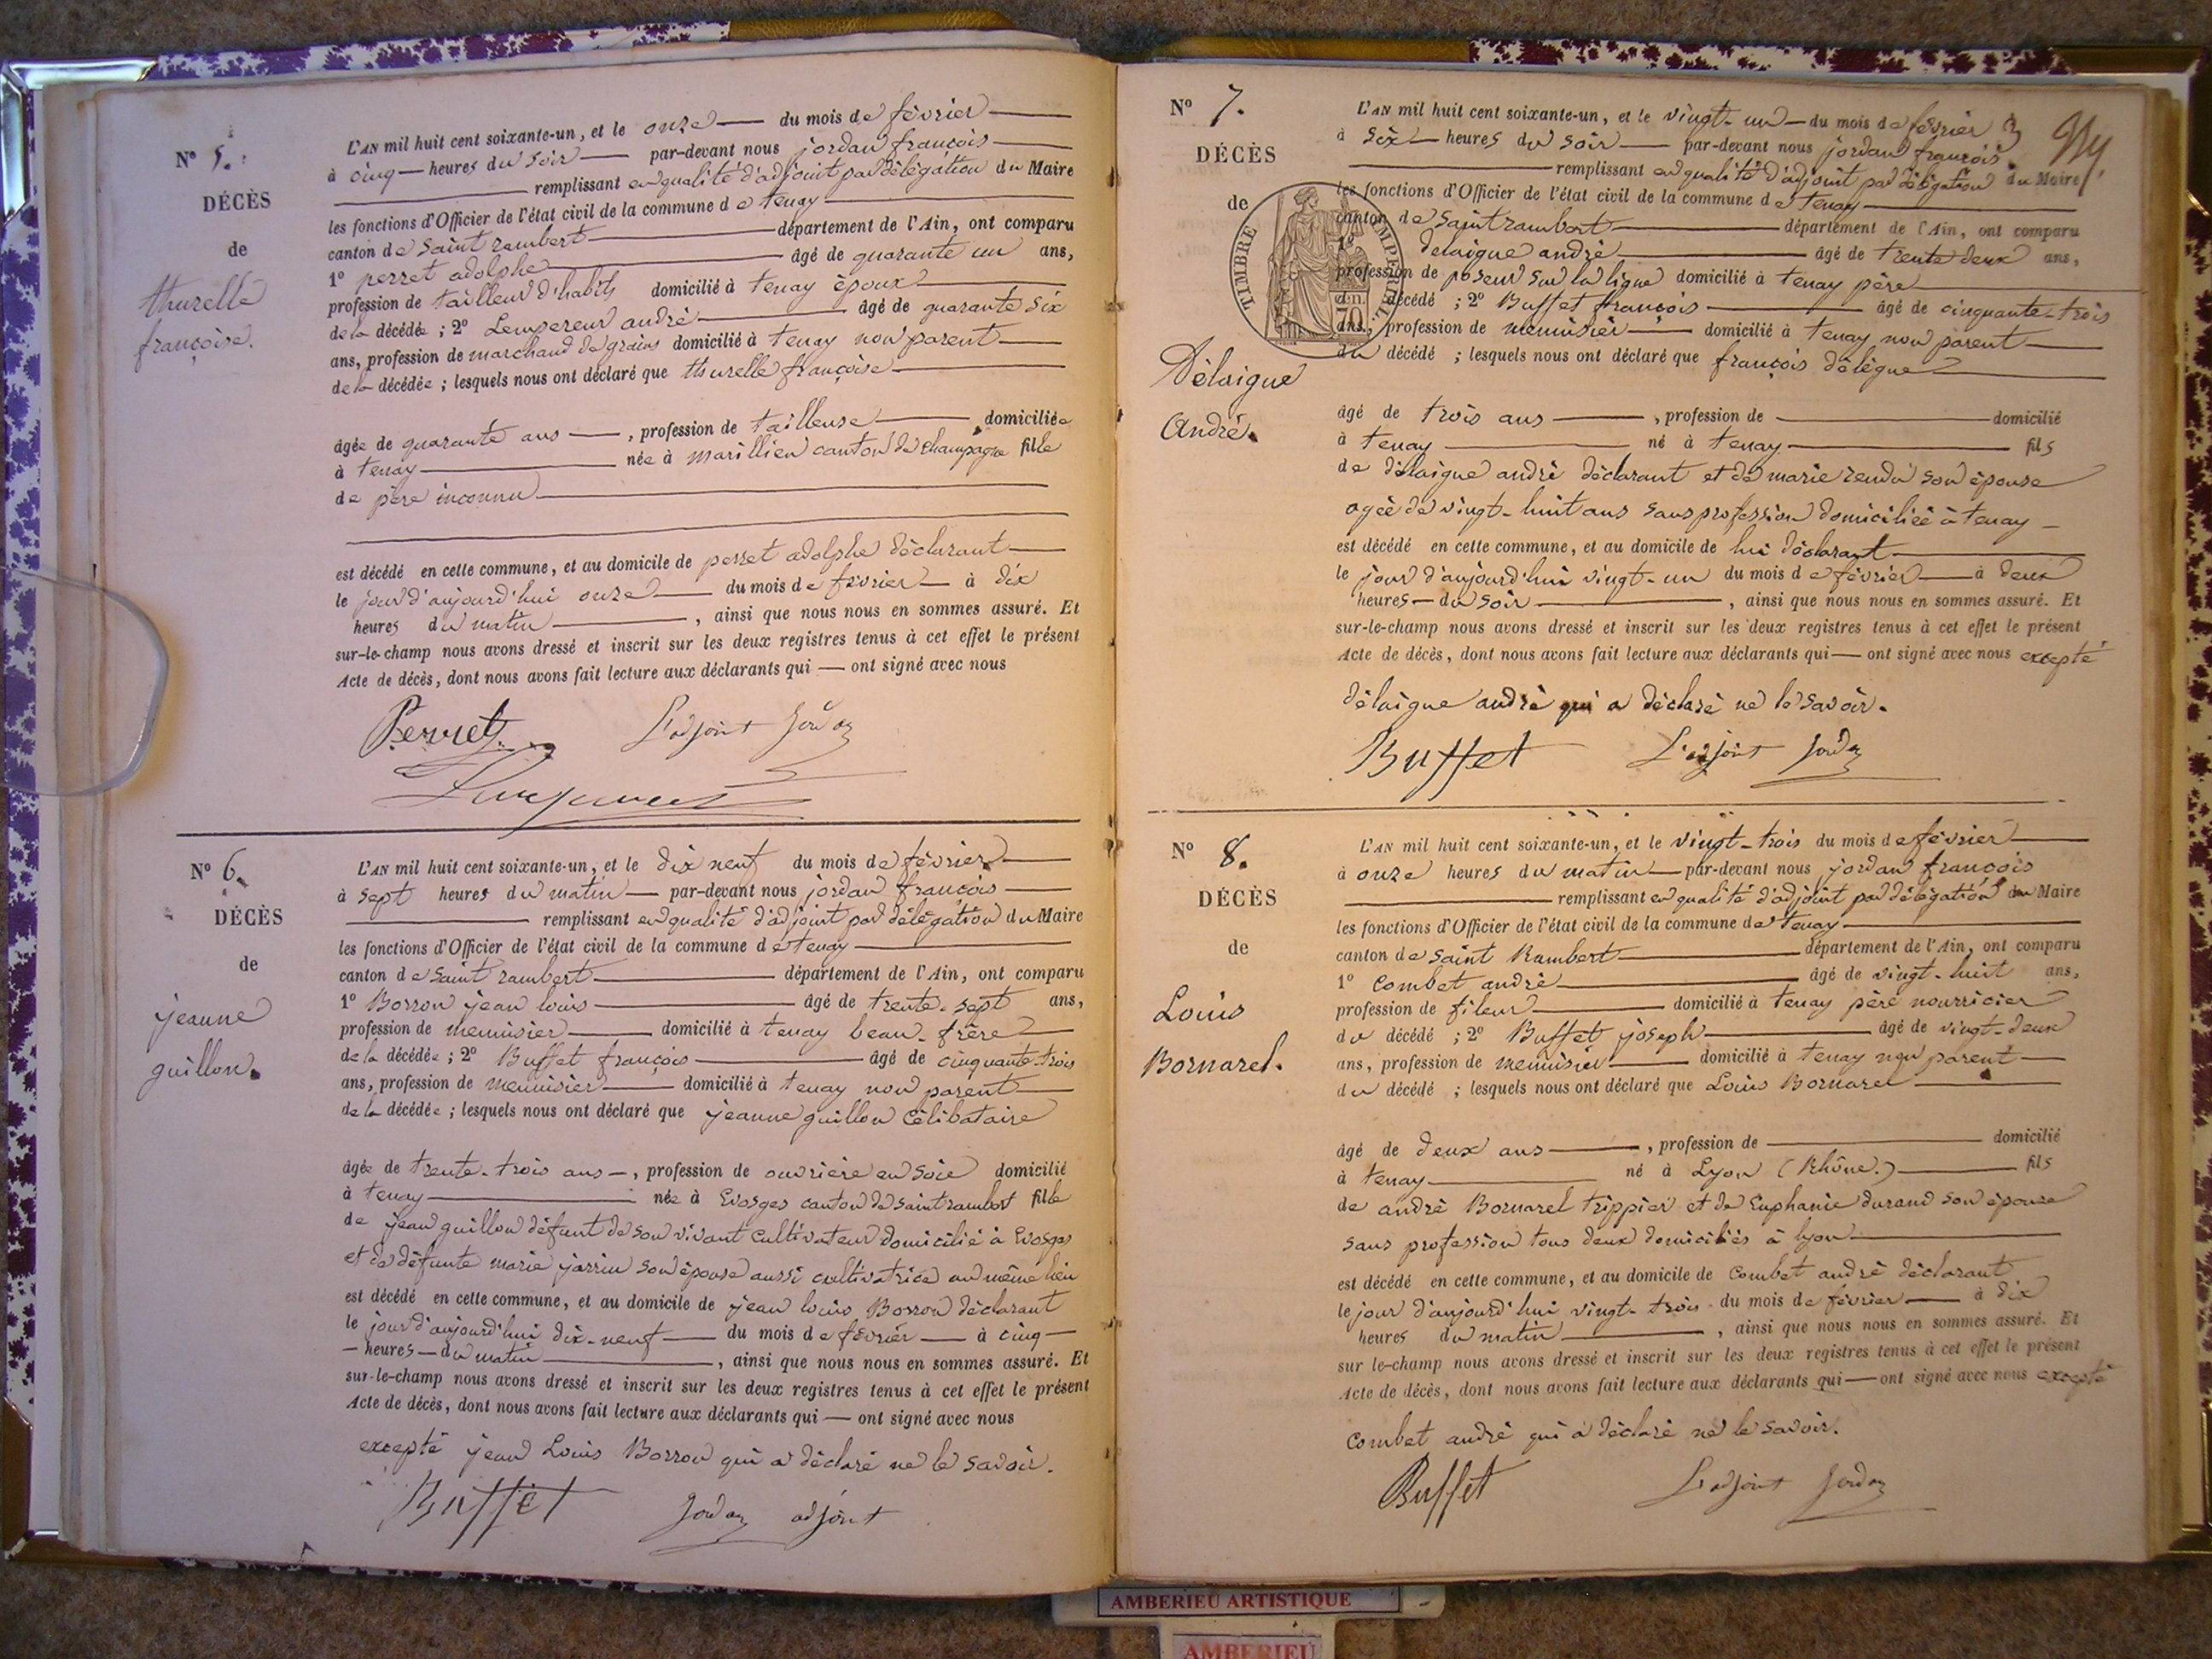 Nº 5.
DÉCÈS
de
thurelle
françoise.
L'AN mil huit cent soixante-un, et le onze du mois de février
à cinq heures du soir par-devant nous jordan françois
remplissant en qualité d'adjoint par délégation du Maire
les fonctions d'Officier de l'état civil de la commune de tenay
canton de saint rambert département de l'Ain, ont comparu
1º perret adolphe âgé de quarante un ans,
profession de tailleur d'habits domicilié à tenay époux
de la décédée ; 2º Lempereur andré âgé de quarante six
ans, profession de marchand de grains domicilié à tenay non parent
de la décédée ; lesquels nous ont déclaré que thurelle françoise
âgée de quarante ans , profession de tailleuse domiciliée
à tenay née à marillieu canton de champagne fille
de père inconnu
est décédé en cette commune, et au domicile de perret adolphe déclarant
le jour d'aujourd'hui onze du mois de février à dix
heures du matin , ainsi que nous nous en sommes assuré. Et
sur-le-champ nous avons dressé et inscrit sur les deux registres tenus à cet effet le présent
Acte de décès, dont nous avons fait lecture aux déclarants qui ont signé avec nous
Perret L'adjoint Jordan
Nº 6.
DÉCÈS
de
jeanne
guillon.
L'AN mil huit cent soixante-un, et le dix neuf du mois de février
à sept heures du matin par-devant nous jordan françois
remplissant en qualité d'adjoint par délégation du Maire
les fonctions d'Officier de l'état civil de la commune de tenay
canton de saint rambert département de l'Ain, ont comparu
1º Borron jean louis âgé de trente-sept ans,
profession de menuisier domicilié à tenay beau-frère
de la décédée ; 2º Buffet françois âgé de cinquante-trois
ans, profession de menuisier domicilié à tenay non parent
de la décédée ; lesquels nous ont déclaré que jeanne guillon célibataire
âgée de trente-trois ans , profession de ouvrière en soie domicilié
à tenay née à Evosges canton de saint rambert fille
de jean guillon défunt de son vivant cultivateur domicilié à Evosges
et de défunte marie jarrin son épouse aussi cultivatrice au même lieu
est décédé en cette commune, et au domicile de jean louis Borron déclarant
le jour d'aujourd'hui dix-neuf du mois de février à cinq
heures du matin , ainsi que nous nous en sommes assuré. Et
sur-le-champ nous avons dressé et inscrit sur les deux registres tenus à cet effet le présent
Acte de décès, dont nous avons fait lecture aux déclarants qui ont signé avec nous
excepté jean Louis Borron qui a déclaré ne le savoir.
Buffet Jordan adjoint
Nº 7.
DÉCÈS
de
Délaigue
André.
TIMBRE IMPERIAL
70
L'AN mil huit cent soixante-un, et le vingt-un du mois de février 3
à six heures du soir par-devant nous jordan françois.
remplissant en qualité d'adjoint par délégation du Maire
les fonctions d'Officier de l'état civil de la commune de tenay
canton de saint rambert département de l'Ain, ont comparu
1º delaigue andré âgé de trente deux ans,
profession de poseur sur la ligne domicilié à tenay père
du décédé ; 2º Buffet françois âgé de cinquante-trois
ans, profession de menuisier domicilié à tenay non parent
du décédé ; lesquels nous ont déclaré que françois délègue
âgé de trois ans , profession de domicilié
à tenay né à tenay fils
de délaigue andré déclarant et de marie rendu son épouse
agée de vingt-huit ans sans profession domiciliée à tenay
est décédé en cette commune, et au domicile de lui déclarant
le jour d'aujourd'hui vingt-un du mois de février à deux
heures du soir , ainsi que nous nous en sommes assuré. Et
sur-le-champ nous avons dressé et inscrit sur les deux registres tenus à cet effet le présent
Acte de décès, dont nous avons fait lecture aux déclarants qui ont signé avec nous excepté
délaigue andré qui a déclaré ne le savoir.
Buffet L'adjoint Jordan
Nº 8.
DÉCÈS
de
Louis
Bornarel.
L'AN mil huit cent soixante-un, et le vingt-trois du mois de février
à onze heures du matin par-devant nous jordan françois
remplissant en qualité d'adjoint par délégation du Maire
les fonctions d'Officier de l'état civil de la commune de tenay
canton de saint Rambert département de l'Ain, ont comparu
1º Combet andré âgé de vingt-huit ans,
profession de fileur domicilié à tenay père nourricier
du décédé ; 2º Buffet joseph âgé de vingt-deux
ans, profession de menuisier domicilié à tenay non parent
du décédé ; lesquels nous ont déclaré que Louis Bornarel
âgé de deux ans , profession de domicilié
à tenay né à Lyon (Rhône.) fils
de andré Bornarel trippier et de Euphanie durand son épouse
sans profession tous deux domiciliés à lyon
est décédé en cette commune, et au domicile de Combet andré déclarant
le jour d'aujourd'hui vingt-trois du mois de février à dix
heures du matin , ainsi que nous nous en sommes assuré. Et
sur le-champ nous avons dressé et inscrit sur les deux registres tenus à cet effet le présent
Acte de décès, dont nous avons fait lecture aux déclarants qui ont signé avec nous excepté
Combet andré qui a déclaré ne le savoir.
Buffet L'adjoint Jordan
AMBERIEU ARTISTIQUE
AMBERIEU